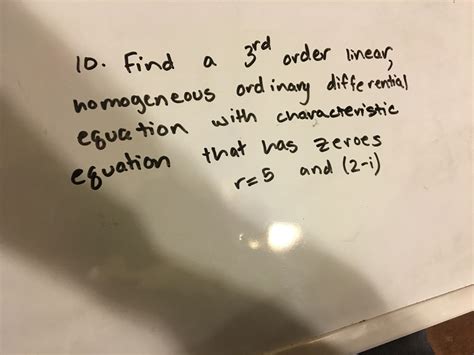 10. Find a 3rd order linear,
homogeneous ordinary differential
equation with characteristic
equation that has zeroes
r=5 and (2-i)